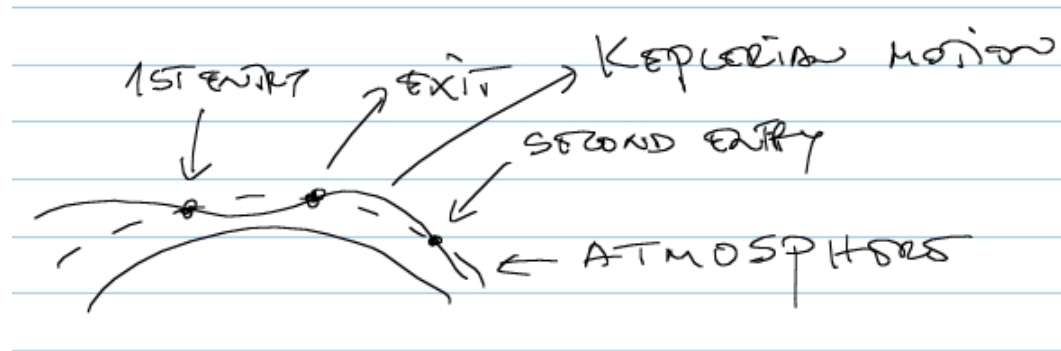 1ST ENTRY
EXIT
KEPLERIAN MOTION
SECOND ENTRY
ATMOSPHERE